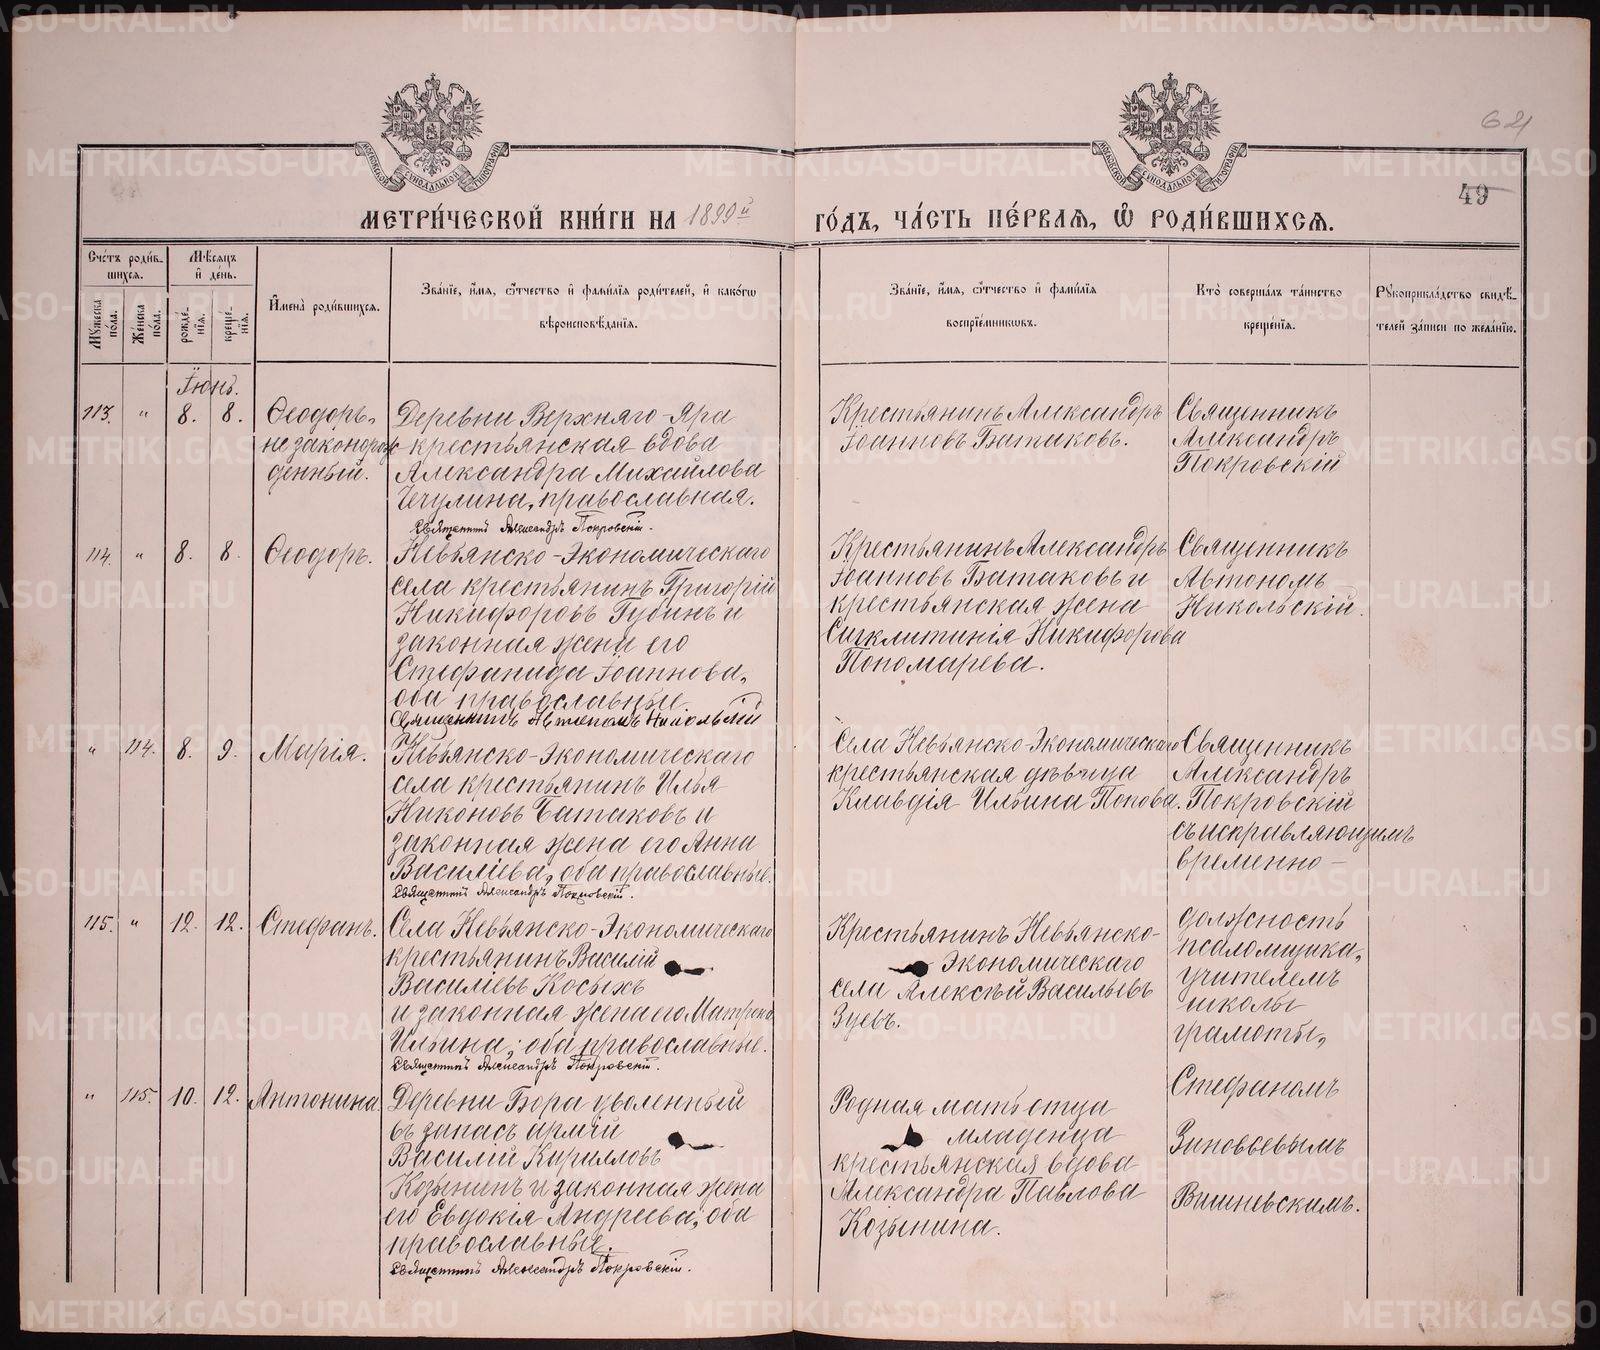 62
49
МЕТРИ́ЧЕСКОЙ КНИ́ГИ НА 1899й ГО́ДЪ, ЧА́СТЬ ПЕ́РВАѦ, Ѿ РОДИ́ВШИХСѦ.
Сче́тъ роди́в-
шихсѧ.
Мꙋ́жеска по́ла.
Же́нска по́ла.
Мѣ́сѧцъ
и҆ де́нь.
рожде́-
нїѧ.
креще́-
нїѧ.
И҆мена̀ роди́вшихсѧ.
Зва́нїе, и҆́мѧ, ѻ҆́тчество и҆ фами́лїѧ роди́телей, и҆ како́гѡ
вѣроисповѣ́данїѧ.
Зва́нїе, и҆́мѧ, ѻ҆́тчество и҆ фами́лїѧ
воспрїе́мникѡвъ.
Кто̀ соверша́лъ та́инство
креще́нїѧ.
Рꙋкоприкла́дство свидѣ́-
телей за́писи по жела́нїю.
Іюнь.
113. " 8. 8.
Ѳеодоръ,
незаконорож
денный.
Деревни Верхняго-Яра
крестьянская вдова
Александра Михайлова
Чечулина, православная.
Священникъ Александръ Покровскій.
Крестьянинъ Александръ
Іоанновъ Батаковъ.
Священникъ
Александръ
Покровскій
114. " 8. 8.
Ѳеодоръ.
Невьянско-Экономическаго
села крестьянинъ Григорій
Никифоровъ Губинъ и
законная жена его
Стефанида Іоаннова,
оба православные.
Священникъ Автономъ Никольскій
Крестьянинъ Александръ
Іоанновъ Батаковъ и
крестьянская жена
Сигклитинія Никифорова
Пономарева.
Священникъ
Автономъ
Никольскій.
" 114. 8. 9.
Марія.
Невьянско-Экономическаго
села крестьянинъ Илья
Никоновъ Батаковъ и
законная жена его Анна
Василіева, оба православные.
Священникъ Александръ Покровскій.
Села Невьянско-Экономическаго
крестьянская дѣвица
Клавдія Ильина Попова.
Священникъ
Александръ
Покровскій
съ исправляющимъ
временно —
должность
псаломщика,
учителемъ
школы
грамоты,
Стефаномъ
Зиновьевымъ
Вишневскимъ.
115. " 12. 12.
Стефанъ.
Села Невьянско-Экономическаго
крестьянинъ Василій
Василіевъ Косыхъ
и законная жена его Матрона
Ильина; оба православные.
Священникъ Александръ Покровскій.
Крестьянинъ Невьянско-
Экономическаго
села Алексѣй Васильевъ
Зуевъ.
" 115. 10. 12.
Антонина
Деревни Бора уволенный
въ запасъ арміи
Василій Кирилловъ
Козынинъ и законная жена
его Евдокія Андреева; оба
православные.
Священникъ Александръ Покровскій.
Родная мать отца
младенца
крестьянская вдова
Александра Павлова
Козынина.
METRIKI.GASO-URAL.RU